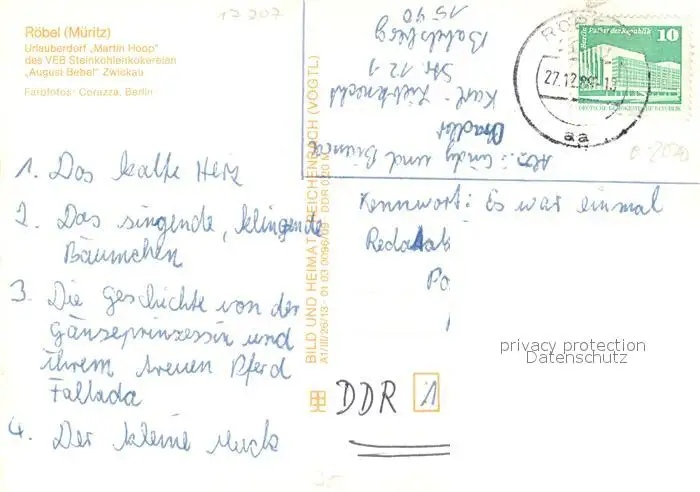 17 207
Röbel (Müritz)
Urlauberdorf „Martin Hoop"
des VEB Steinkohlenkokereien
„August Bebel" Zwickau
Farbfotos: Corazza, Berlin
1. Das kalte Herz
2. Das singende, klingende
Bäumchen
3. Die Geschichte von der
Gänseprinzessin und
ihrem treuen Pferd
Fallada
4. Der kleine Muck
BILD UND HEIMAT REICHENBACH (VOGTL)
A1/III/26/13 01 03 0096/09 DDR 0,20 M
Abs.: Cindy und Bianca
Karl-Liebknecht
Str. 121
Babelsberg
1590
RÖBEL
27.12.
aa
Berlin, Palast der Republik
10
DEUTSCHE DEMOKRATISCHE REPUBLIK
Kennwort: Es war einmal
Redak
Po
DDR 1
privacy protection
Datenschutz